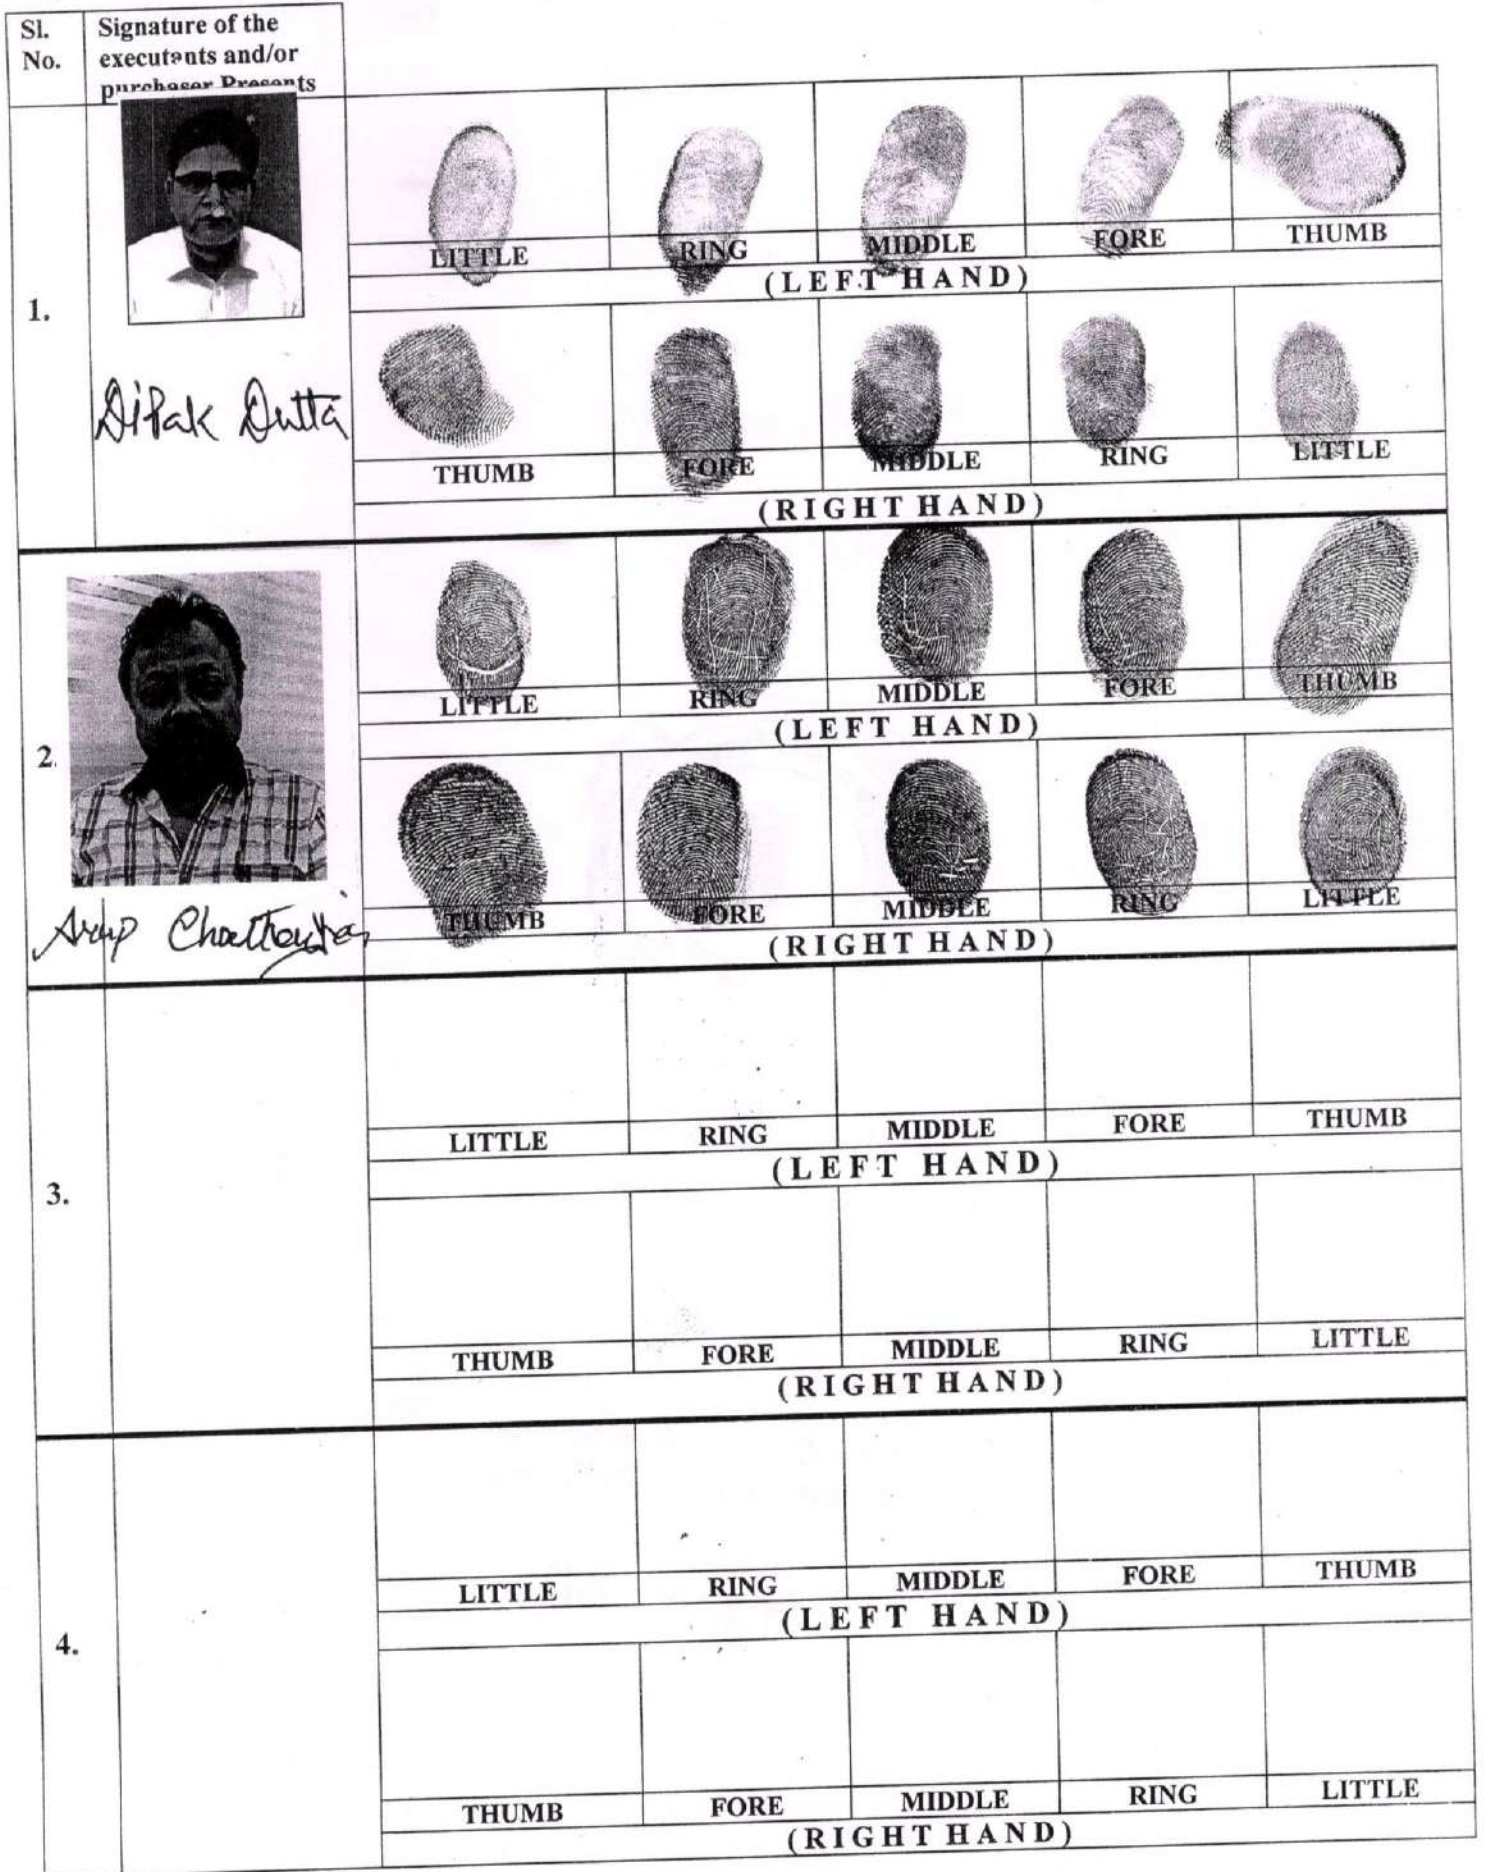 Sl.
No.
Signature of the
executants and/or
purchaser Presents
1.
Dipak Dutta
LITTLE RING MIDDLE FORE THUMB
(LEFT HAND)
THUMB FORE MIDDLE RING LITTLE
(RIGHT HAND)
2.
Arup Chatterjee
LITTLE RING MIDDLE FORE THUMB
(LEFT HAND)
THUMB FORE MIDDLE RING LITTLE
(RIGHT HAND)
3.
LITTLE RING MIDDLE FORE THUMB
(LEFT HAND)
THUMB FORE MIDDLE RING LITTLE
(RIGHT HAND)
4.
LITTLE RING MIDDLE FORE THUMB
(LEFT HAND)
THUMB FORE MIDDLE RING LITTLE
(RIGHT HAND)